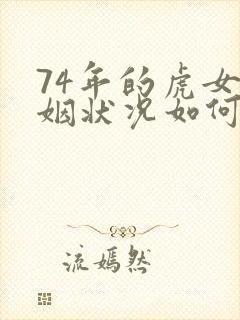 74年的虎女
姻状况如何
流嫣然